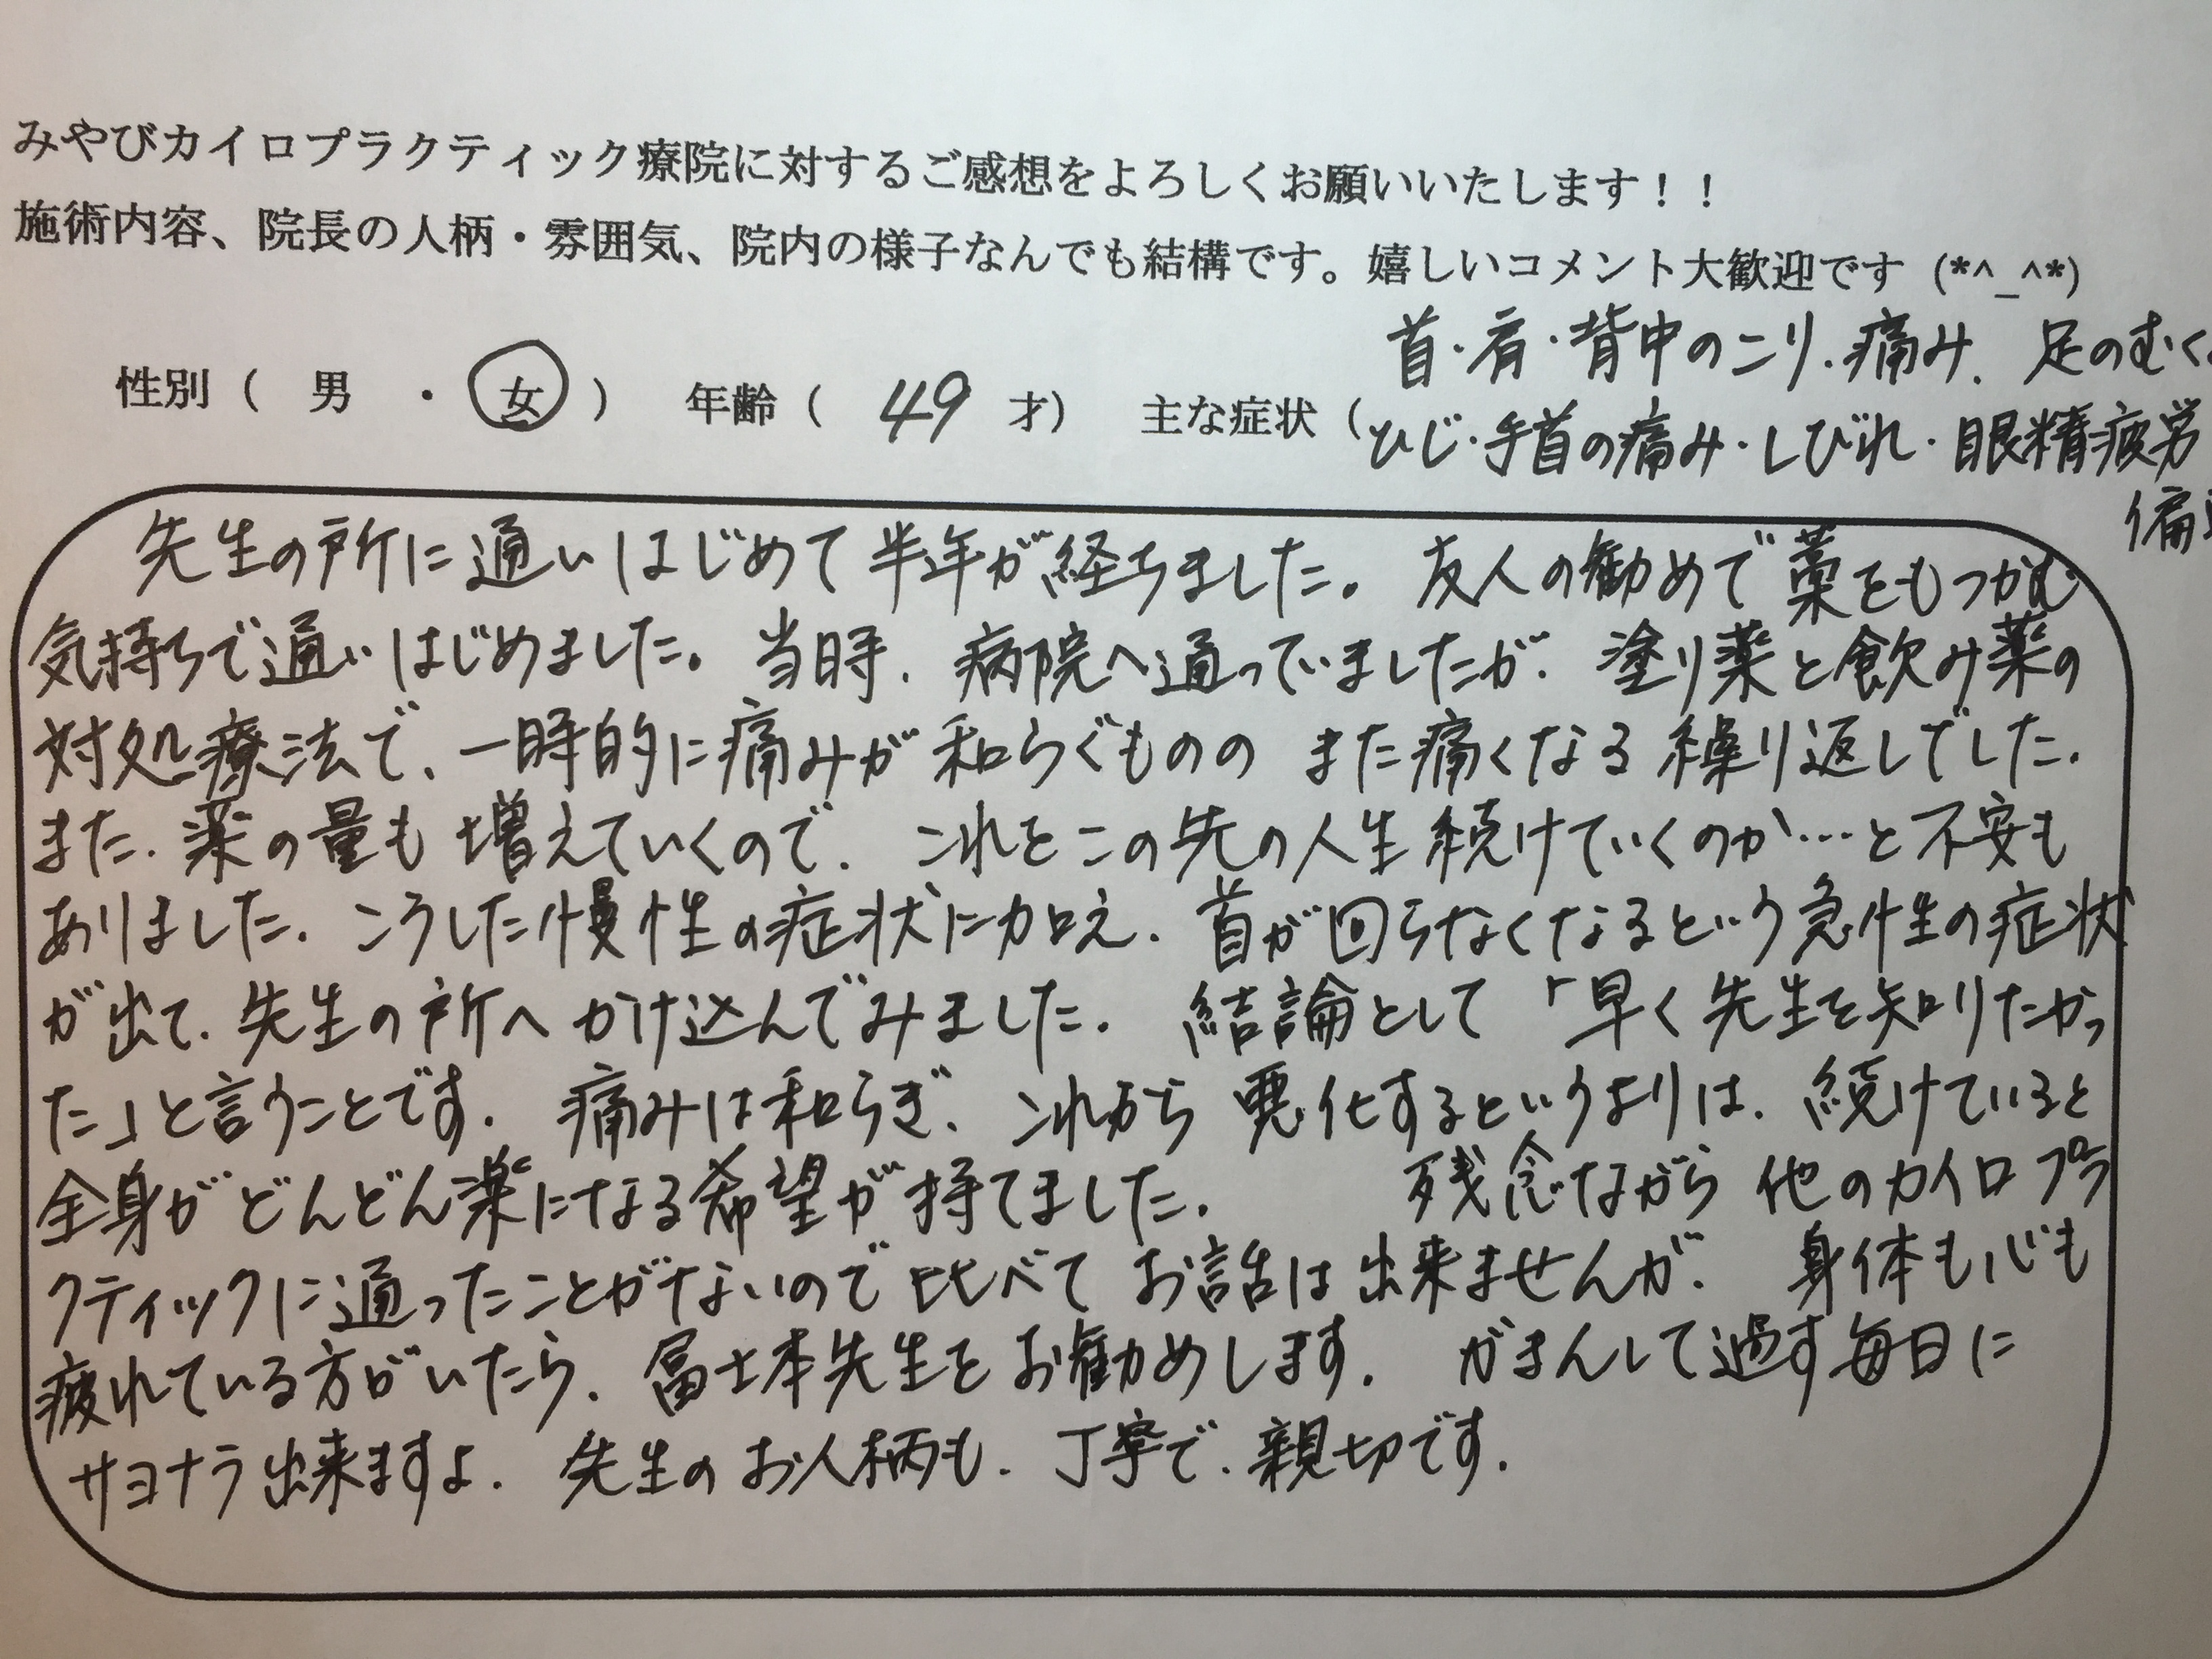 みやびカイロプラクティック療院に対するご感想をよろしくお願いいたします！！
施術内容、院長の人柄・雰囲気、院内の様子なんでも結構です。嬉しいコメント大歓迎です (*^_^*)
首・肩・背中のこり、痛み、足のむく
性別（　男　・　女　）　年齢（　49　才）　主な症状（
ひじ・手首の痛み・しびれ・眼精疲労
偏
先生の所に通いはじめて半年が経ちました。友人の勧めで藁をもつかむ
気持ちで通いはじめました。当時、病院へ通っていましたが、塗り薬と飲み薬の
対処療法で、一時的に痛みが和らぐものの また痛くなる繰り返しでした。
また、薬の量も増えていくので、これをこの先の人生続けていくのか…と不安も
ありました。こうした慢性の症状に加え、首が回らなくなるという急性の症状
が出て、先生の所へかけ込んでみました。結論として「早く先生を知りたかっ
た」と言うことです。痛みは和らぎ、これから悪化するというよりは、続けていると
全身がどんどん楽になる希望が持てました。　残念ながら他のカイロプラ
クティックに通ったことがないので比べてお話は出来ませんが、身体も心も
疲れている方がいたら、冨士本先生をお勧めします。がまんして過す毎日に
サヨナラ出来ますよ。先生のお人柄も、丁寧で、親切です。